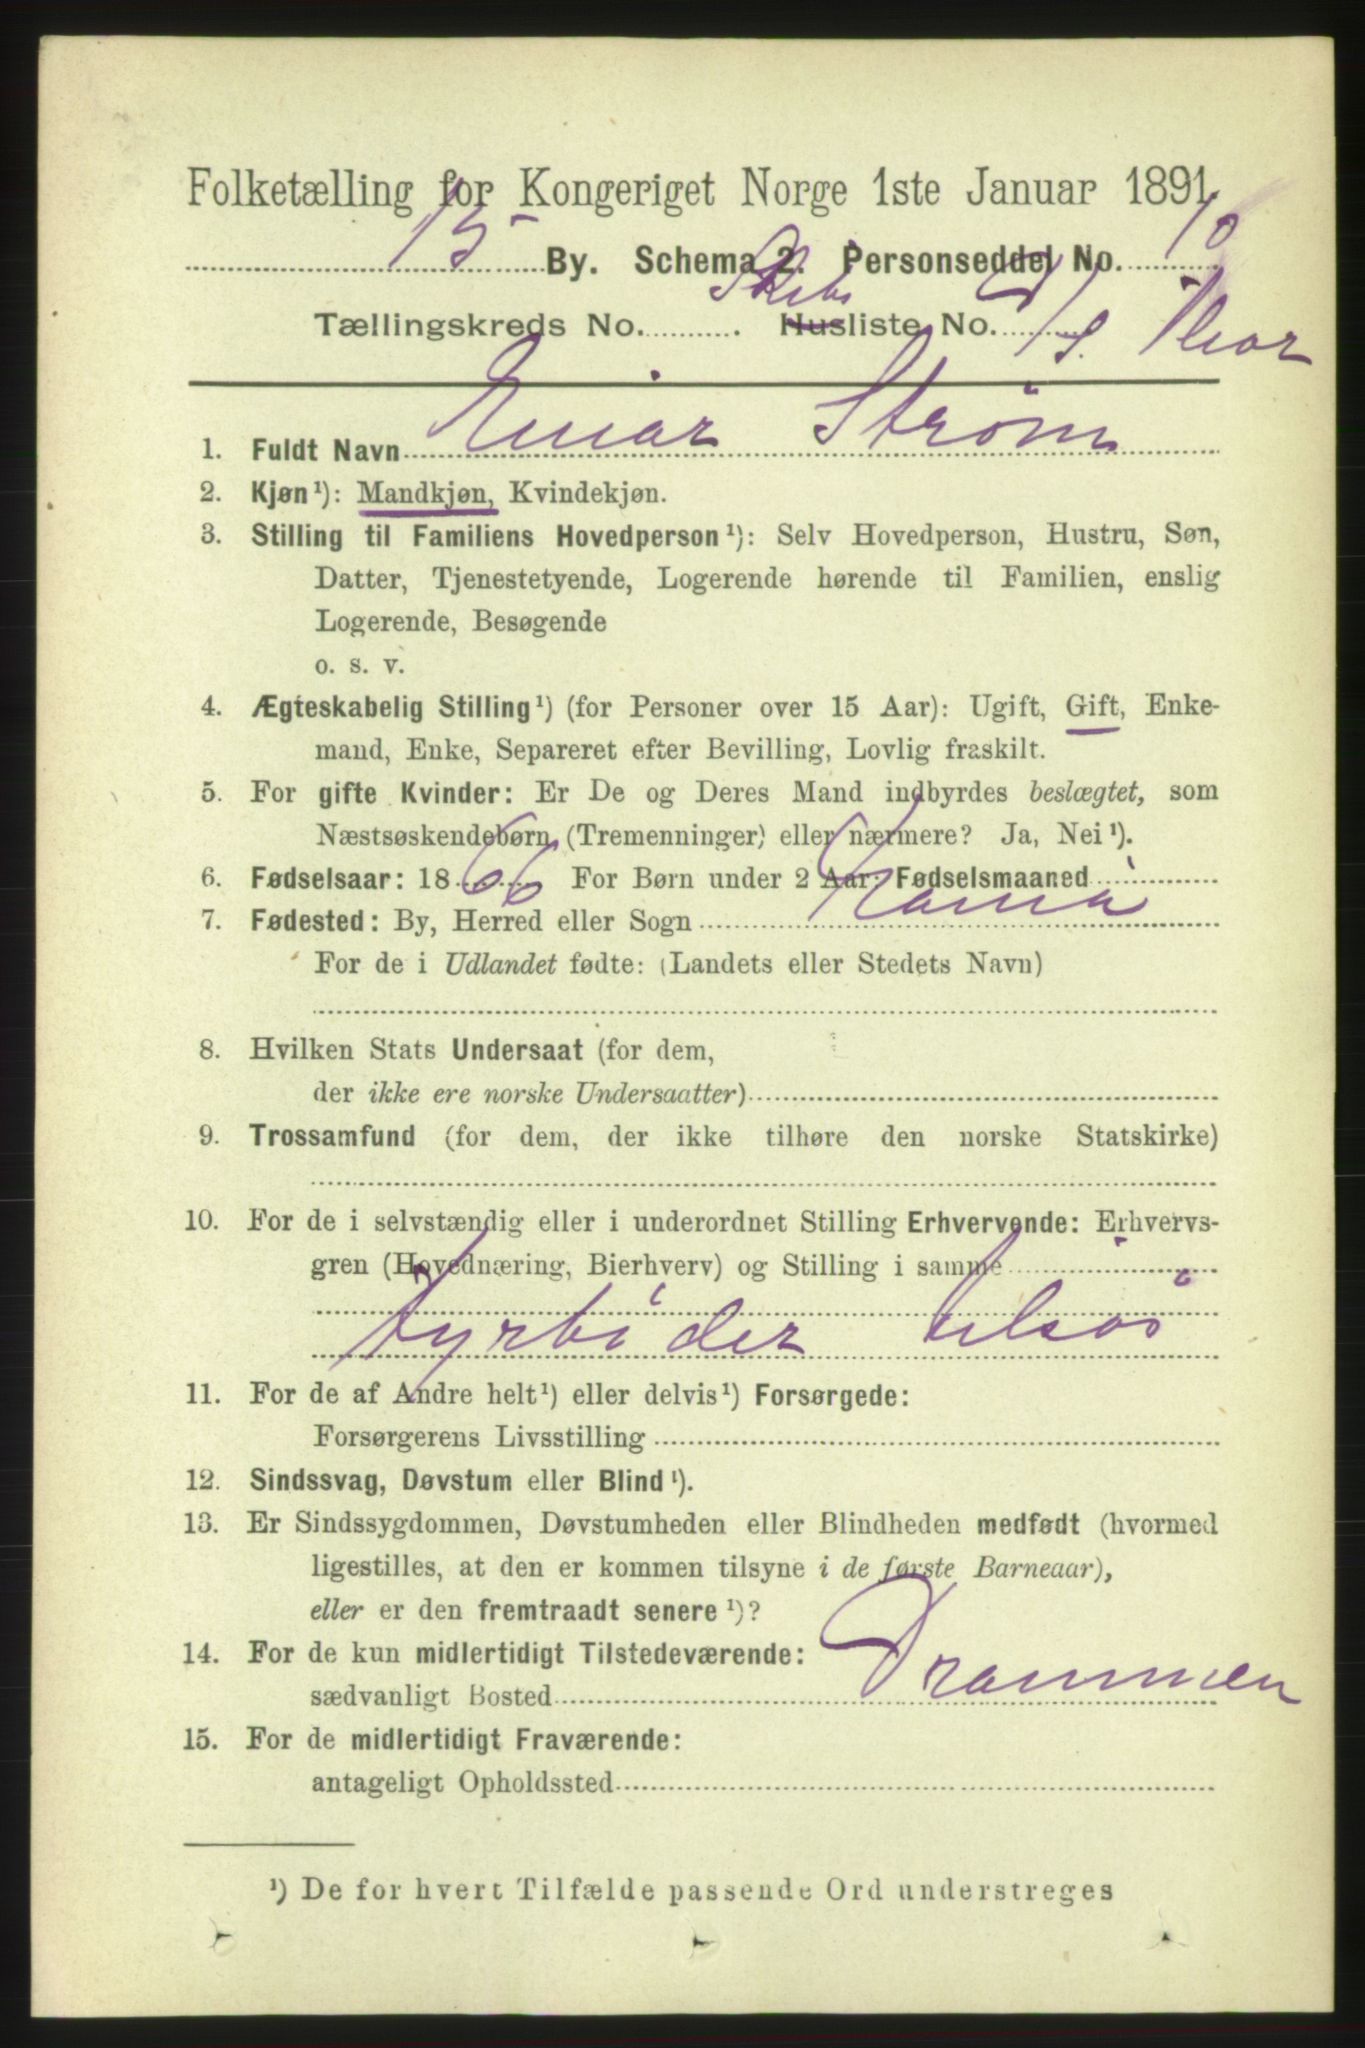 Folketælling for Kongeriget Norge 1ste Januar 1891.
15 By. Schema 2. Personseddel No. 10
Tællingskreds No. Skibs Husliste No. D/S. Thor
1. Fuldt Navn Einar Strøm
2. Kjøn¹): Mandkjøn, Kvindekjøn.
3. Stilling til Familiens Hovedperson¹): Selv Hovedperson, Hustru, Søn,
Datter, Tjenestetyende, Logerende hørende til Familien, enslig
Logerende, Besøgende
o. s. v.
4. Ægteskabelig Stilling¹) (for Personer over 15 Aar): Ugift, Gift, Enke-
mand, Enke, Separeret efter Bevilling, Lovlig fraskilt.
5. For gifte Kvinder: Er De og Deres Mand indbyrdes beslægtet, som
Næstsøskendebørn (Tremenninger) eller nærmere? Ja, Nei¹).
6. Fødselsaar: 1866 For Børn under 2 Aar: Fødselsmaaned
7. Fødested: By, Herred eller Sogn
For de i Udlandet fødte: (Landets eller Stedets Navn)
8. Hvilken Stats Undersaat (for dem,
der ikke ere norske Undersaatter)
9. Trossamfund (for dem, der ikke tilhøre den norske Statskirke)
10. For de i selvstændig eller i underordnet Stilling Erhvervende: Erhvervs-
gren (Hovednæring, Bierhverv) og Stilling i samme
Fyrbøder
11. For de af Andre helt¹) eller delvis¹) Forsørgede:
Forsørgerens Livsstilling
12. Sindssvag, Døvstum eller Blind¹).
13. Er Sindssygdommen, Døvstumheden eller Blindheden medfødt (hvormed
ligestilles, at den er kommen tilsyne i de første Barneaar),
eller er den fremtraadt senere¹)?
14. For de kun midlertidigt Tilstedeværende:
sædvanligt Bosted Drammen
15. For de midlertidigt Fraværende:
antageligt Opholdssted
¹) De for hvert Tilfælde passende Ord understreges